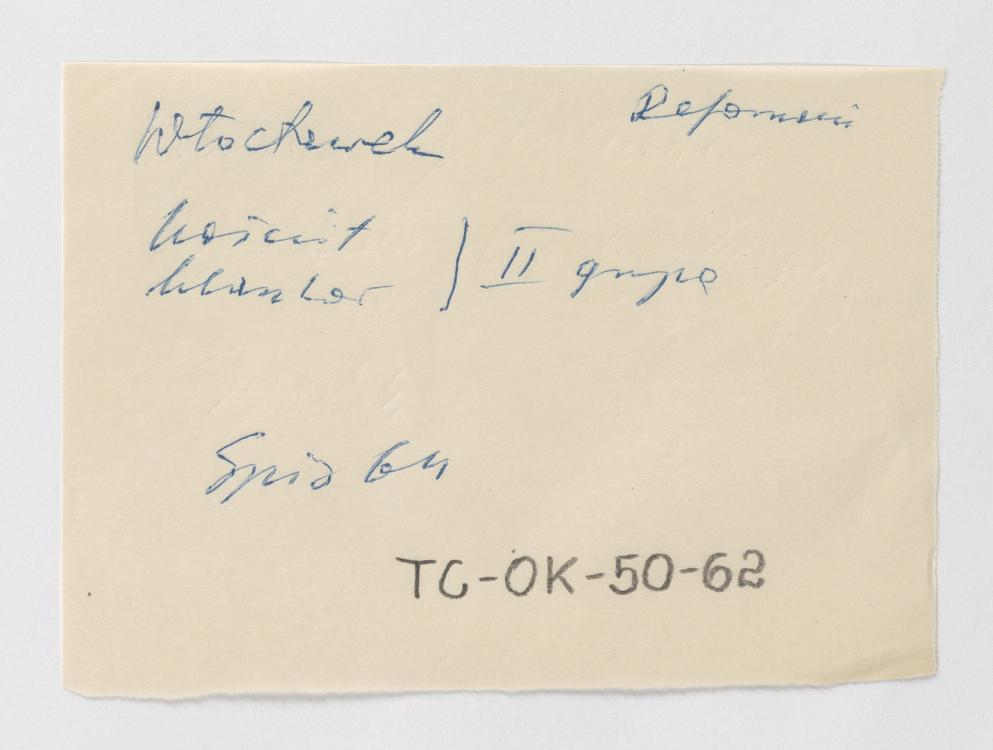 Włocławek
Reformaci
kościół
klasztor } II grupa
Spis 64
TC-OK-50-62